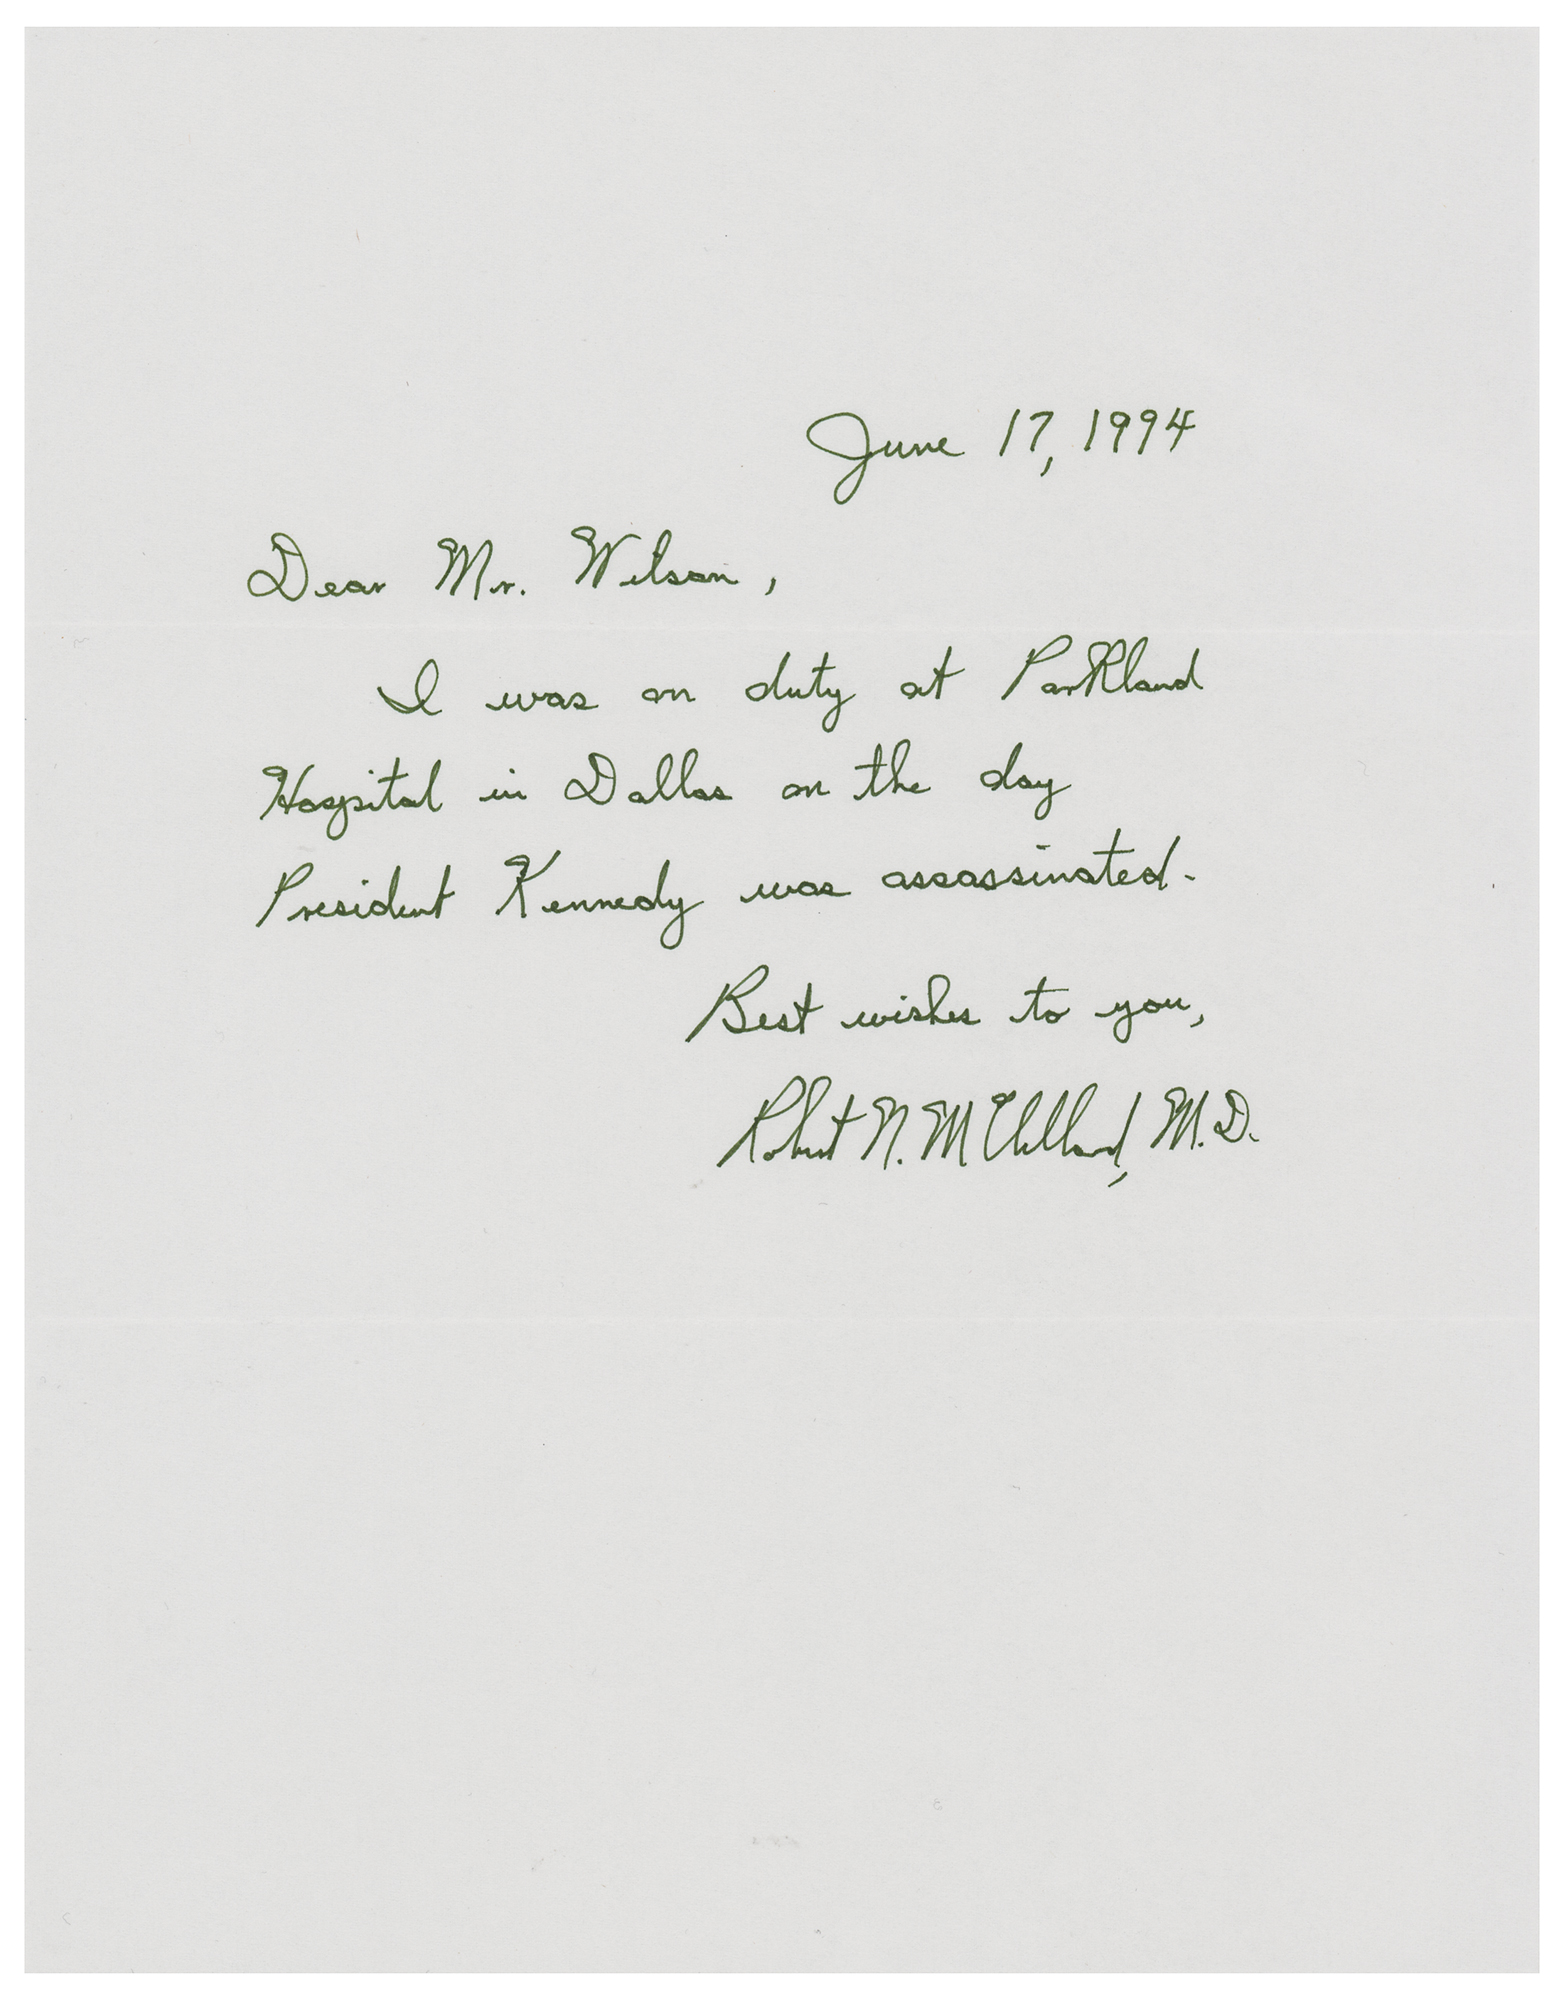 June 17, 1994
Dear Mr. Wilson,
I was on duty at Parkland
Hospital in Dallas on the day
President Kennedy was assassinated.
Best wishes to you,
Robert N. McClelland, M.D.